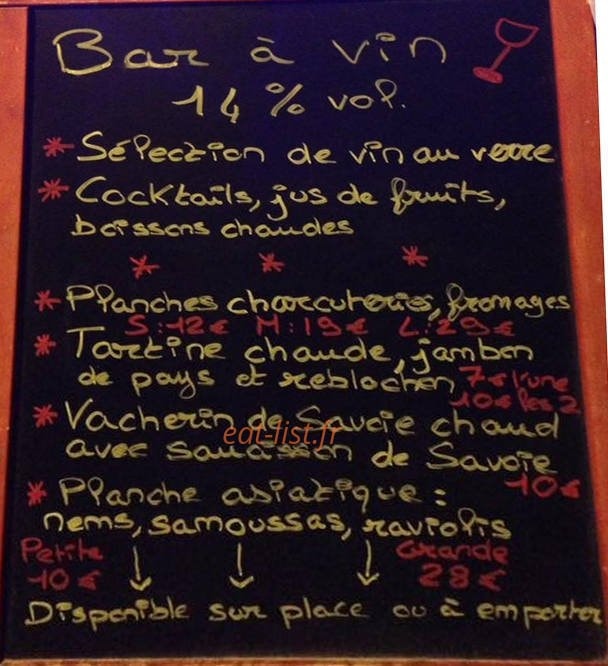 Bar à vin
14 % vol.
* Sélection de vin au verre
* Cocktails, jus de fruits,
boissons chaudes
* * *
* Planches charcuteries, fromages
S : 12 € M : 19 € L : 29 €
* Tartine chaude, jambon
de pays et reblochon 7 € l'une
10 € les 2
* Vacherin de Savoie chaud
eat-list.fr
avec saucisson de Savoie
10 €
* Planche asiatique :
nems, samoussas, raviolis
Petite Grande
10 € 28 €
Disponible sur place ou à emporter